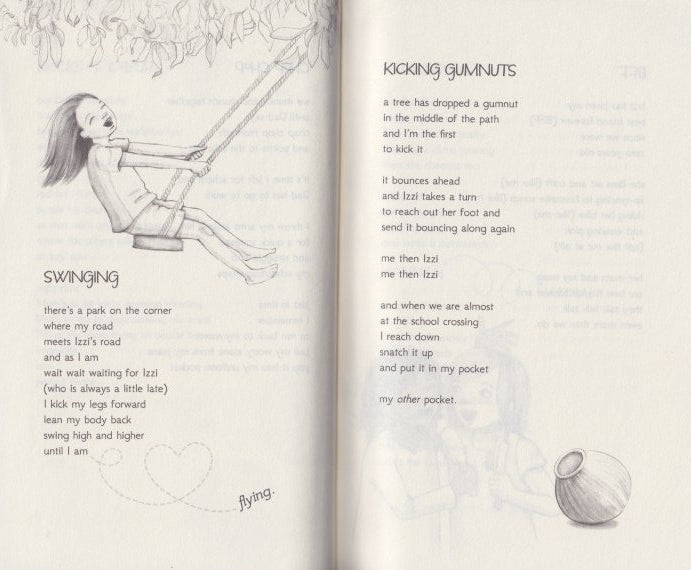 SWINGING
there's a park on the corner
where my road
meets Izzi's road
and as I am
wait wait waiting for Izzi
(who is always a little late)
I kick my legs forward
lean my body back
swing high and higher
until I am
flying.
KICKING GUMNUTS
a tree has dropped a gumnut
in the middle of the path
and I'm the first
to kick it
it bounces ahead
and Izzi takes a turn
to reach out her foot and
send it bouncing along again
me then Izzi
me then Izzi
and when we are almost
at the school crossing
I reach down
snatch it up
and put it in my pocket
my other pocket.